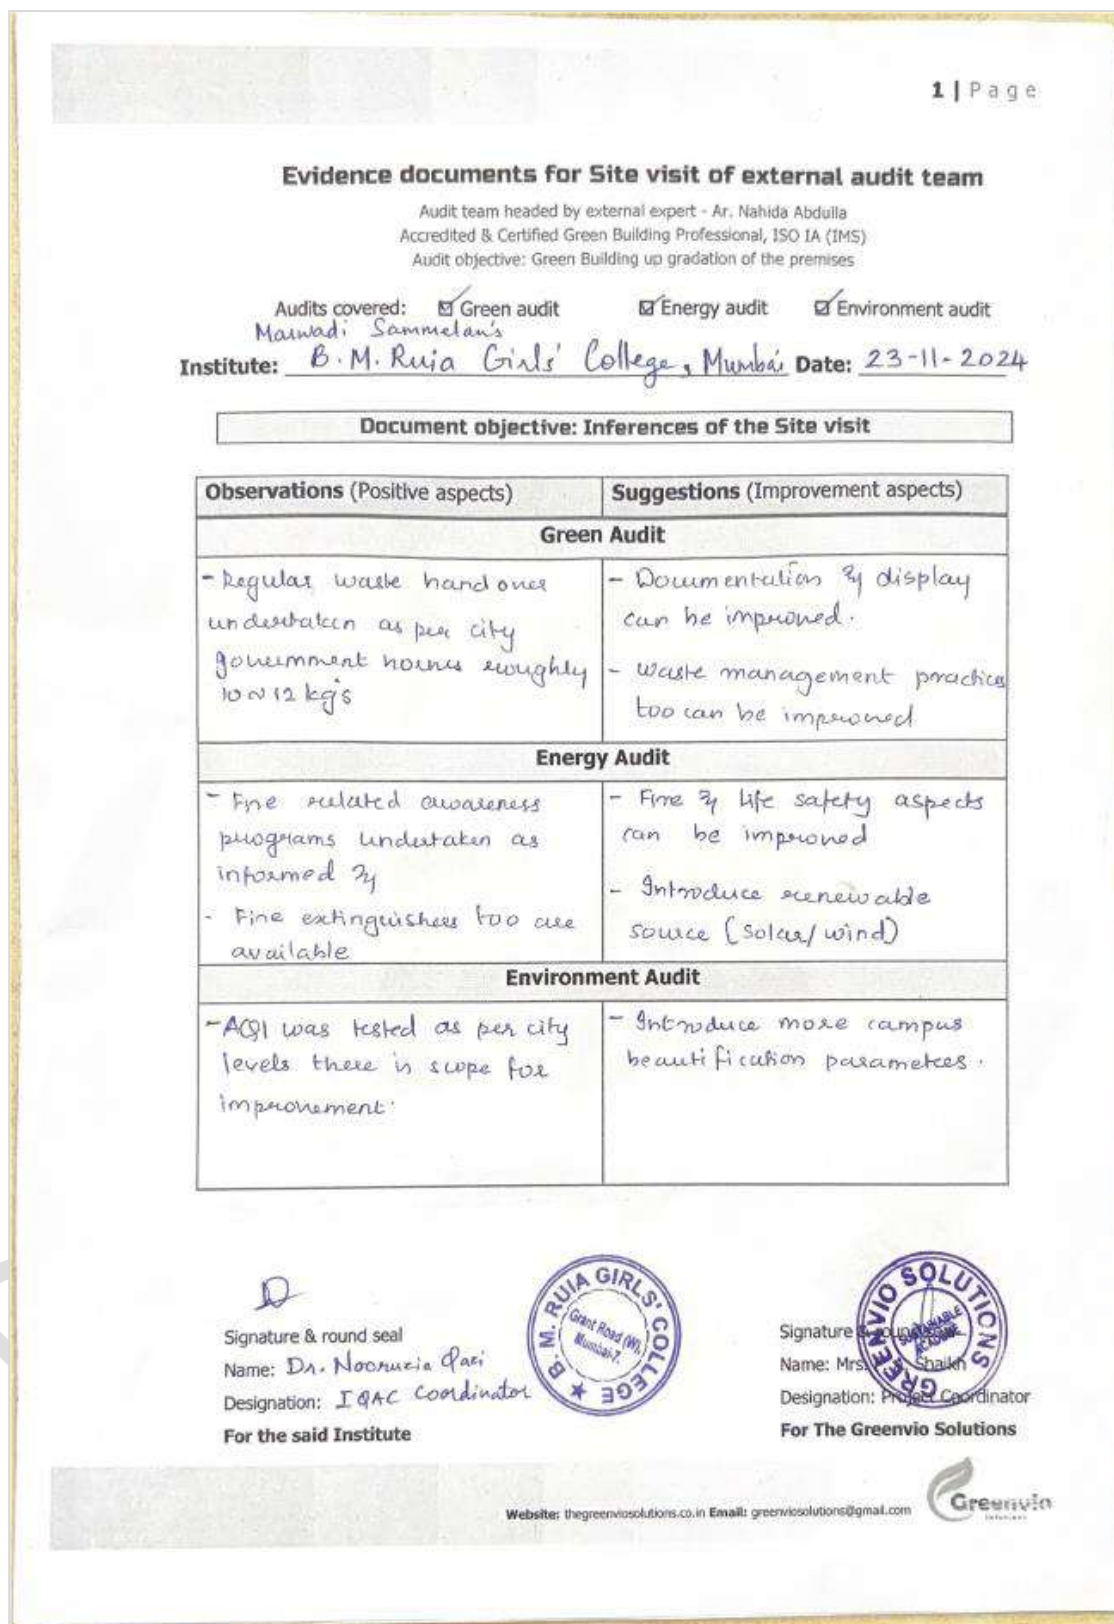 1 | Page
Evidence documents for Site visit of external audit team
Audit team headed by external expert - Ar. Nahida Abdulla
Accredited & Certified Green Building Professional, ISO IA (IMS)
Audit objective: Green Building up gradation of the premises
Audits covered: ☑ Green audit ☑ Energy audit ☑ Environment audit
Marwadi Sammelan's
Institute: B.M. Ruia Girls' College, Mumbai Date: 23-11-2024
Document objective: Inferences of the Site visit
Observations (Positive aspects) Suggestions (Improvement aspects)
Green Audit
- Regular waste handover
undertaken as per city
government norms roughly
10 ~ 12 kg's
- Documentation & display
can be improved.
- Waste management practices
too can be improved
Energy Audit
- Fire related awareness
programs undertaken as
informed &
- Fire extinguishers too are
available
- Fire & life safety aspects
can be improved
- Introduce renewable
source (solar/wind)
Environment Audit
- AQI was tested as per city
levels there is scope for
improvement.
- Introduce more campus
beautification parameters.
Signature & round seal
Name: Dr.
Designation: IQAC Coordinator
For the said Institute
B. M. RUIA GIRLS' COLLEGE
Grant Road (W),
Mumbai-7.
Signature &
Name: Mrs. Shaikh
Designation: Project Coordinator
For The Greenvio Solutions
GREENVIO SOLUTIONS
SUSTAINABLE
ACADEME
Website: thegreenviosolutions.co.in Email: greenviosolutions@gmail.com
Greenvio
Solutions